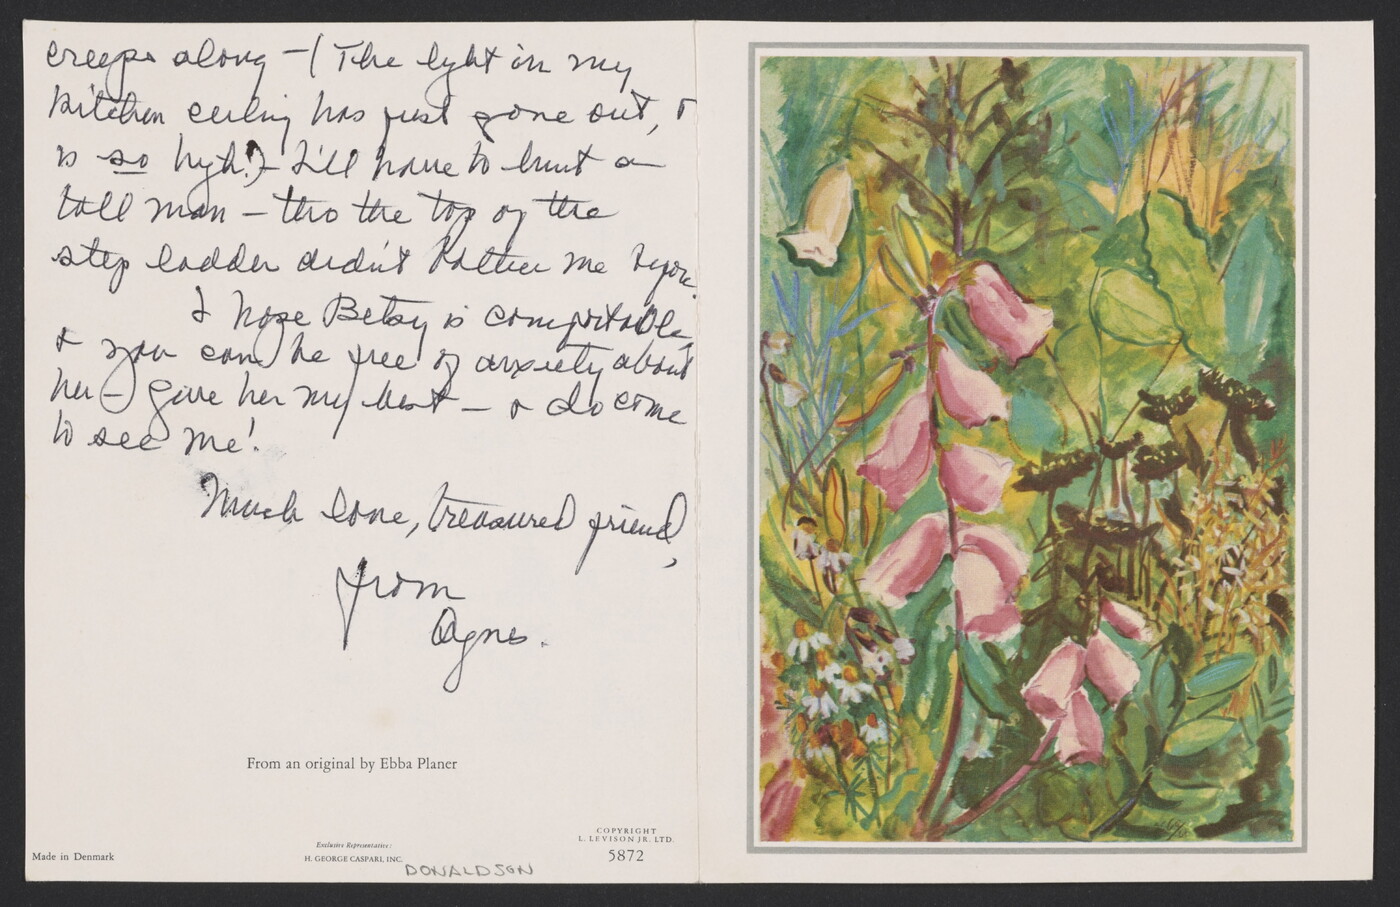 creeps along – (The light in my
kitchen ceiling has just gone out, &
is so high!) – I'll have to hunt a
tall man – tho the top of the
step ladder didn't bother me before.
I hope Betsy is comfortable,
& you can be free of anxiety about
her – give her my best – & do come
to see me!
Much love, treasured friend,
from
Agnes.
From an original by Ebba Planer
COPYRIGHT
L. LEVISON JR. LTD.
5872
Made in Denmark
Exclusive Representative:
H. GEORGE CASPARI, INC.
DONALDSON